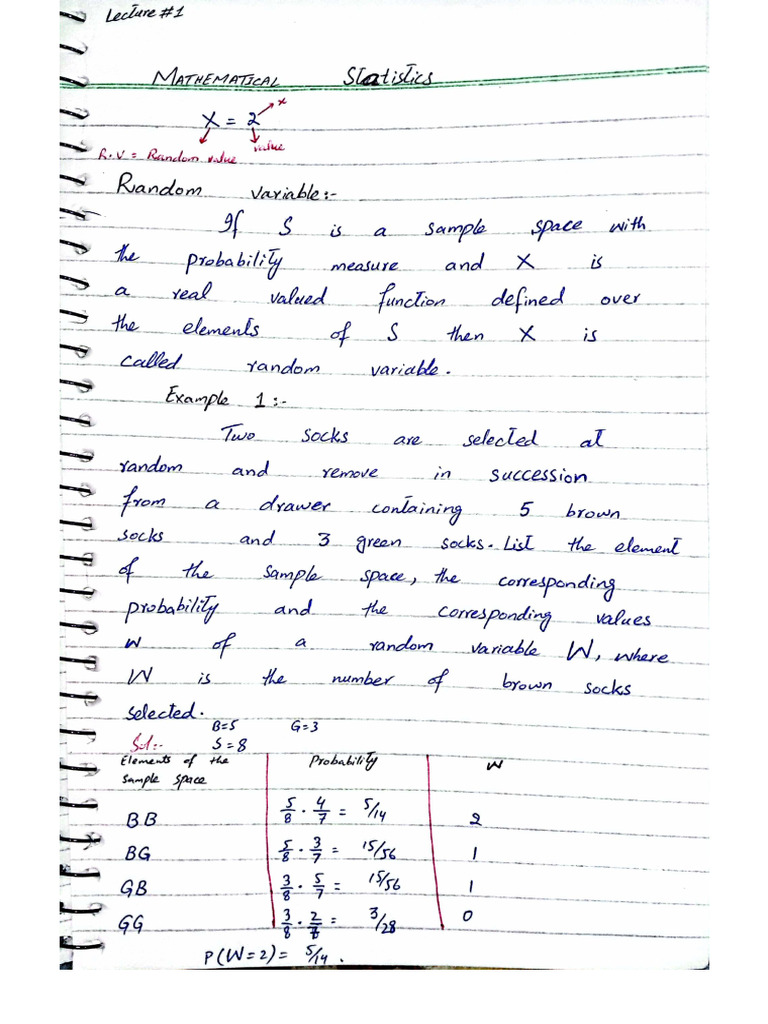 Lecture #1
MATHEMATICAL Statistics
x
X = 2
value
R.V = Random value
Random variable:-
If S is a sample space with
the probability measure and X is
a real valued function defined over
the elements of S then X is
called random variable.
Example 1:-
Two socks are selected at
random and remove in succession
from a drawer containing 5 brown
socks and 3 green socks. List the element
of the sample space, the corresponding
probability and the corresponding values
w of a random variable W, where
W is the number of brown socks
selected.
B=5 G=3
Sol:- S=8
Elements of the sample space Probability W
BB 5/8 . 4/7 = 5/14 2
BG 5/8 . 3/7 = 15/56 1
GB 3/8 . 5/7 = 15/56 1
GG 3/8 . 2/7 = 3/28 0
P(W=2) = 5/14 .